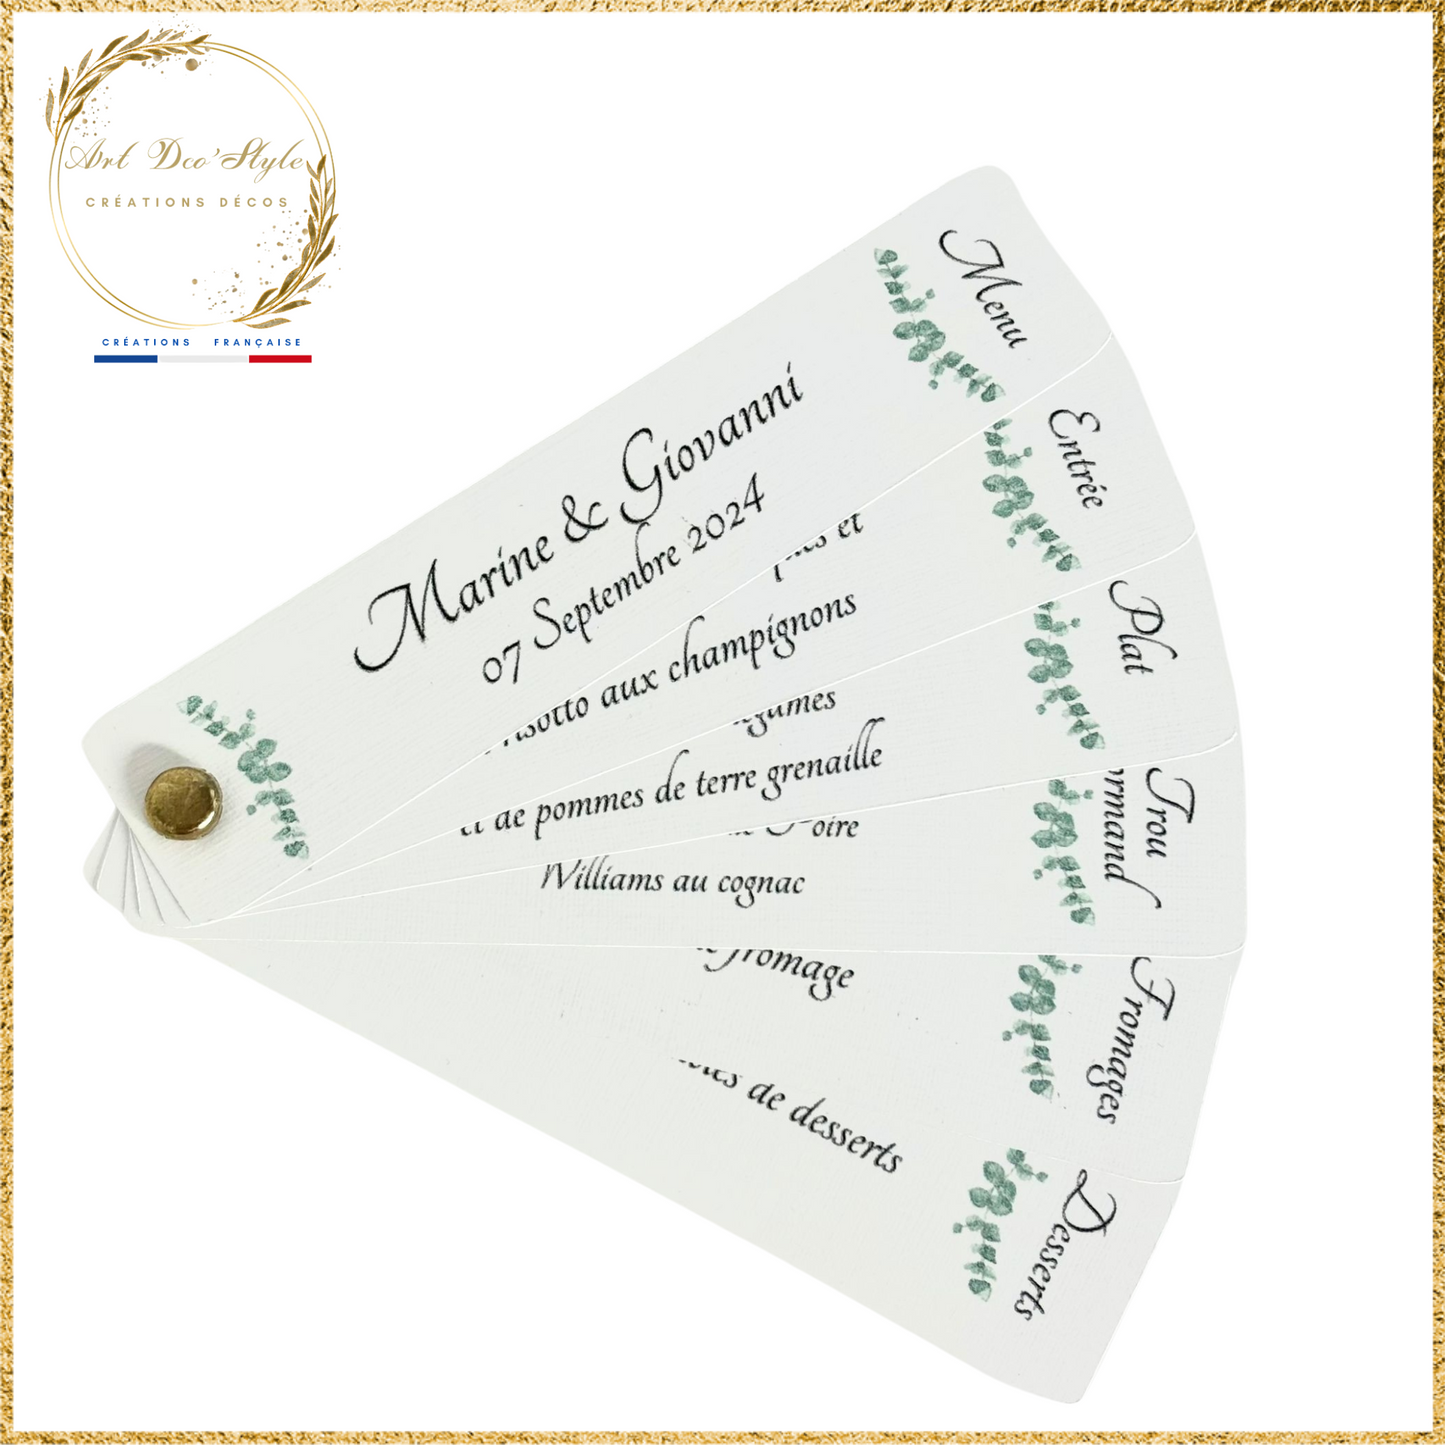 Art Dco'Style
CRÉATIONS DÉCOS
CRÉATIONS FRANÇAISE
Menu
Marine & Giovanni
07 Septembre 2024
Entrée
et
aux champignons
Plat
de pommes de terre grenaille
Trou
Williams au cognac
Fromages
fromage
Desserts
de desserts